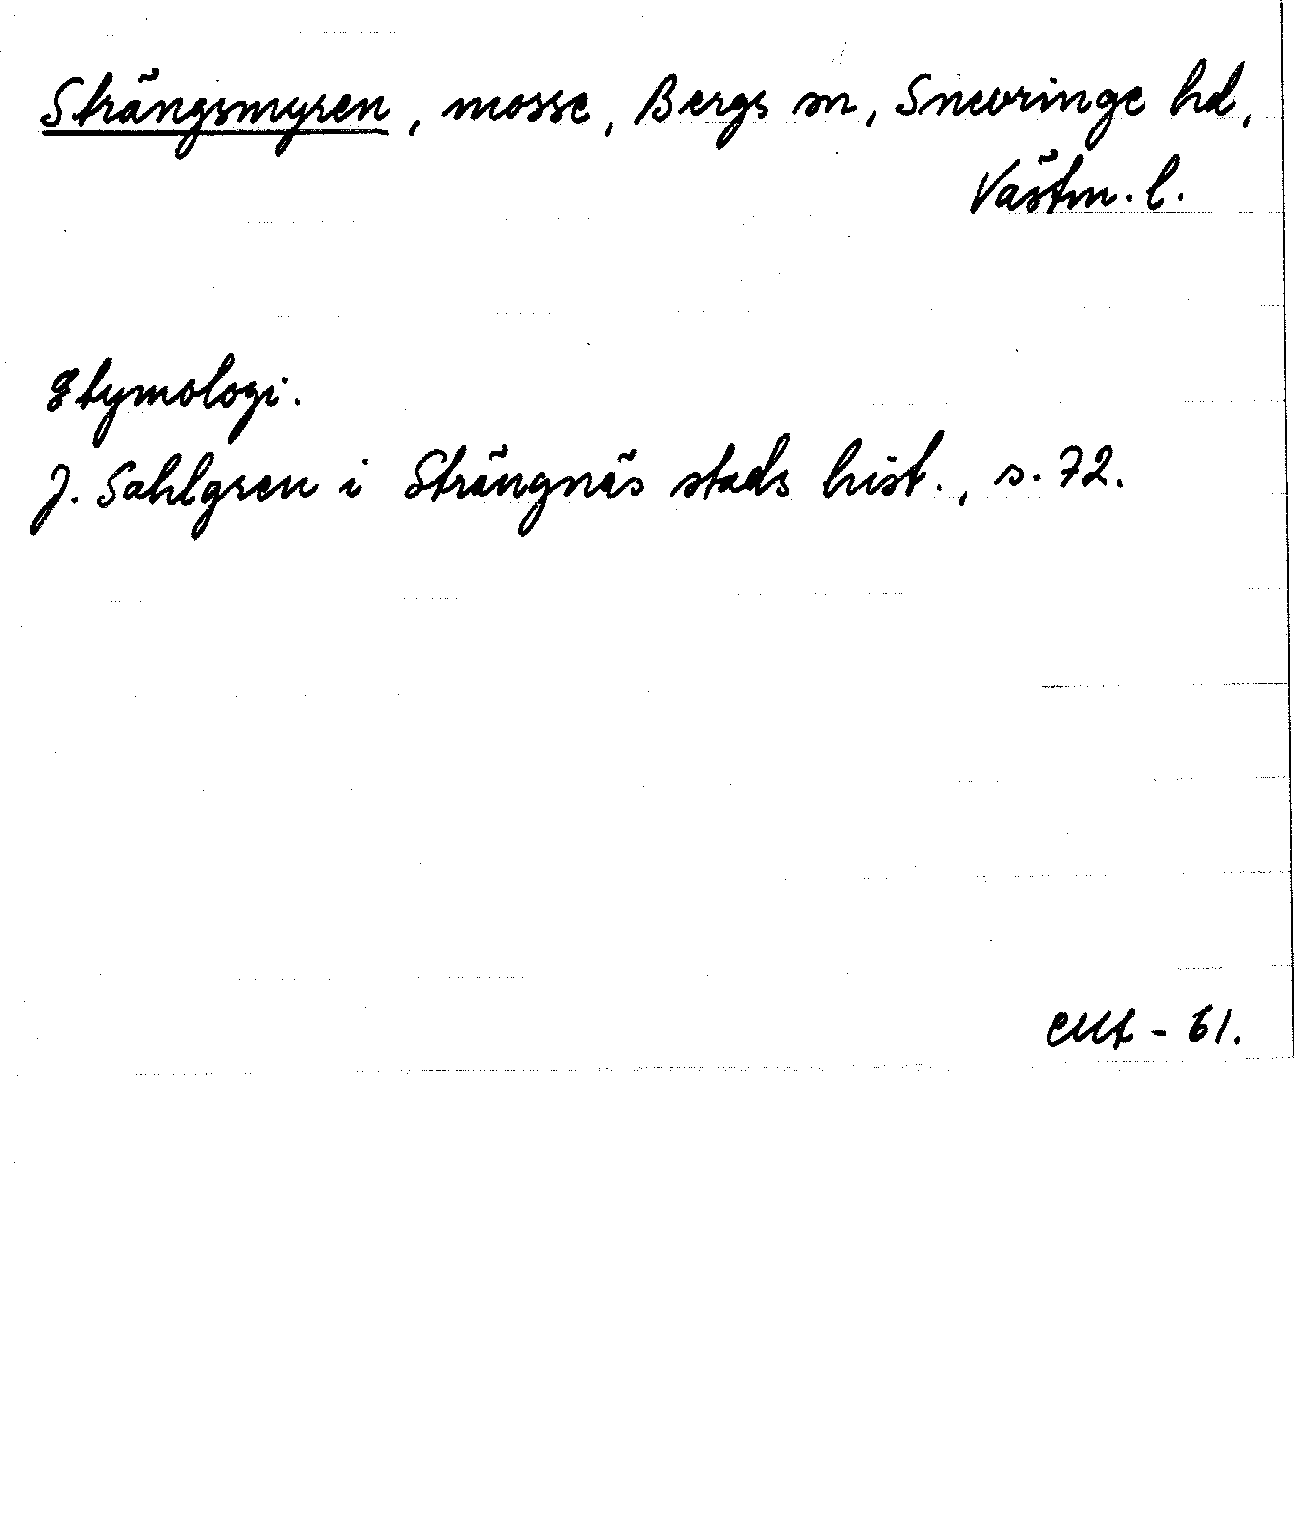 Strängsmyren, mosse, Bergs sn, Snevringe hd,
Västm. l.
Etymologi.
J. Sahlgren i Strängnäs stads hist., s. 72.
- 61.